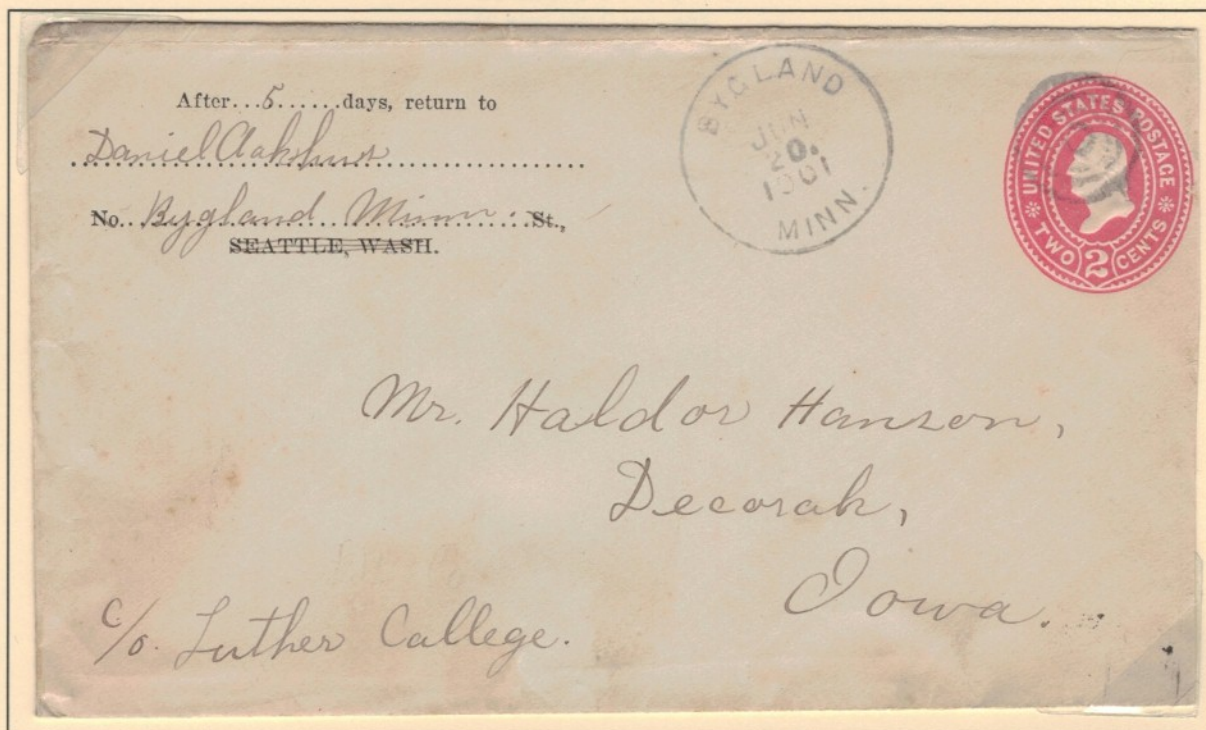 After...5......days, return to
Daniel
No. Bygland Minn. St.,
SEATTLE, WASH.
BYGLAND
JUN
20.
1901
MINN.
UNITED STATES POSTAGE
TWO 2 CENTS
Mr. Haldor Hanson,
Decorah,
Iowa.
c/o. Luther College.